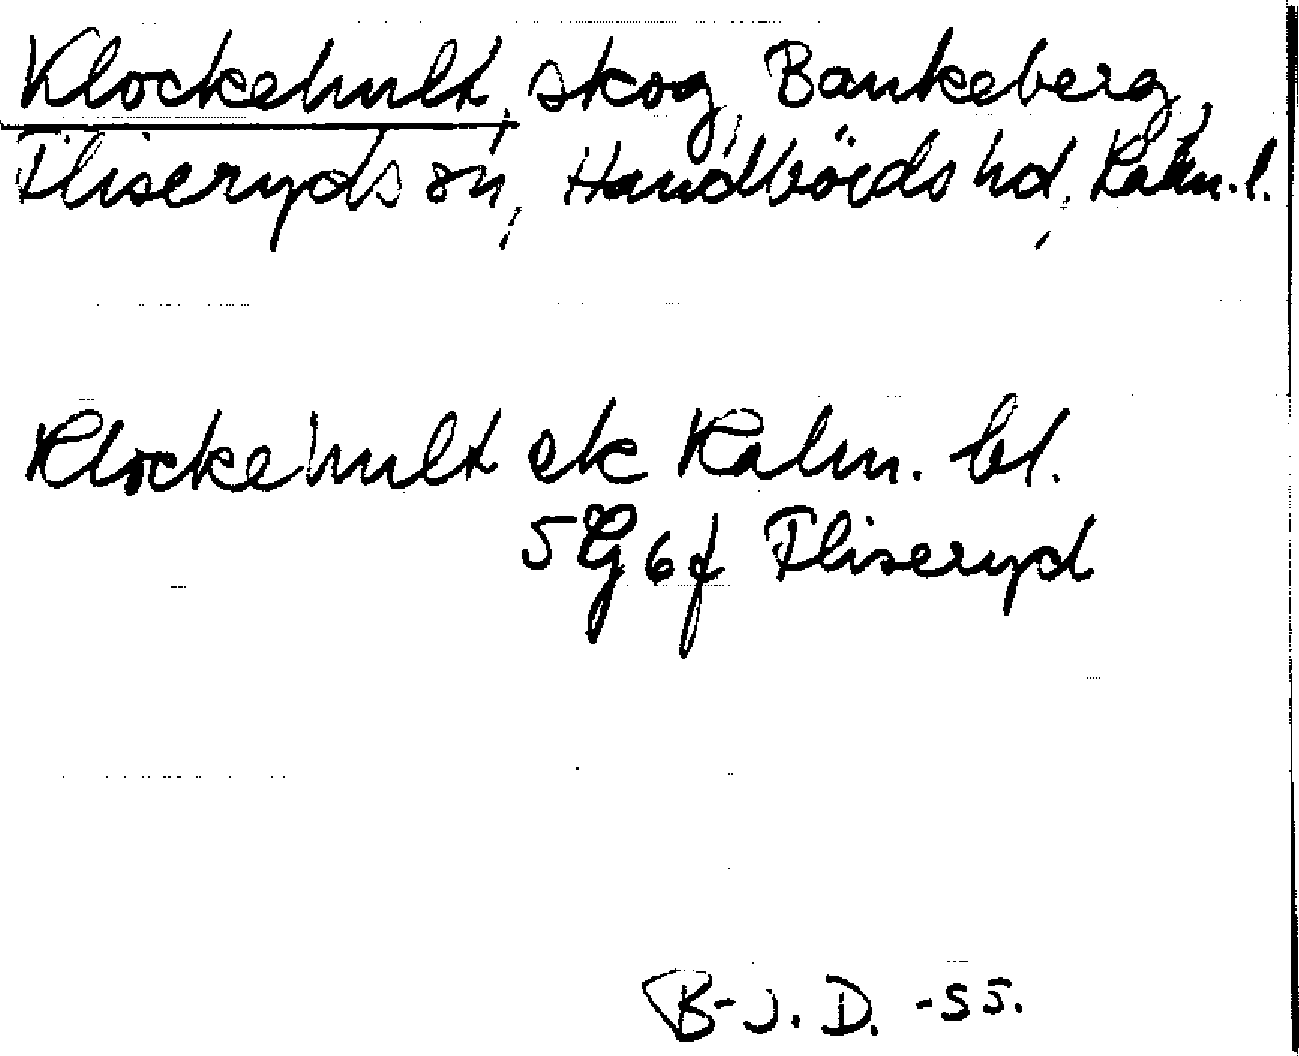 Klockehult, skog, Bankeberg,
Fliseryds sn, Handbörds hd, Kalm. l.
Klockehult ek Kalm. bl.
5 G 6 f Fliseryd
B-J. D. -55.